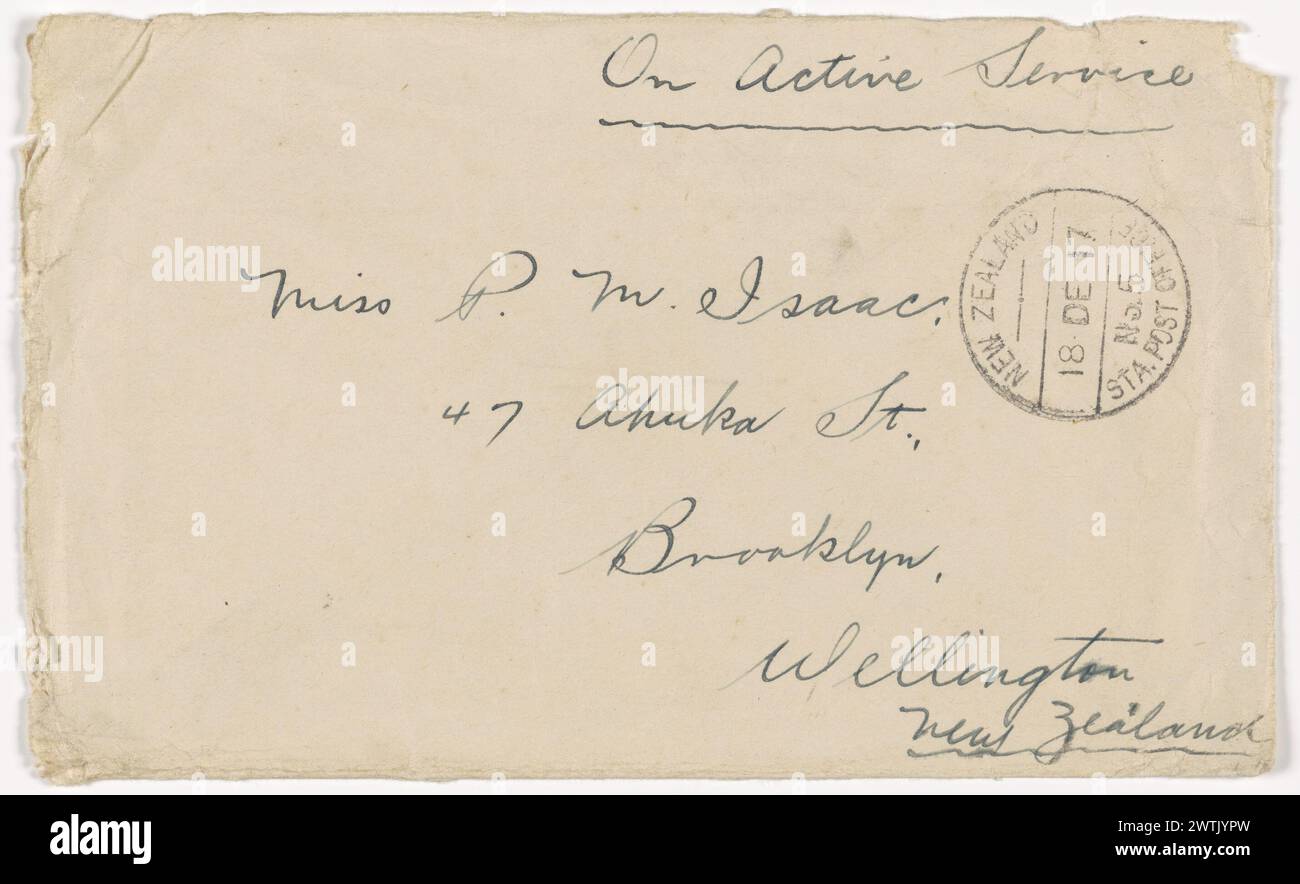 On Active Service
NEW ZEALAND
18 DE 17
No. 5
STA. POST OFFICE
Miss P. M. Isaac,
47 Ahuka St.,
Brooklyn,
Wellington
New Zealand
alamy
alamy
Image ID: 2WTJYPW
www.alamy.com